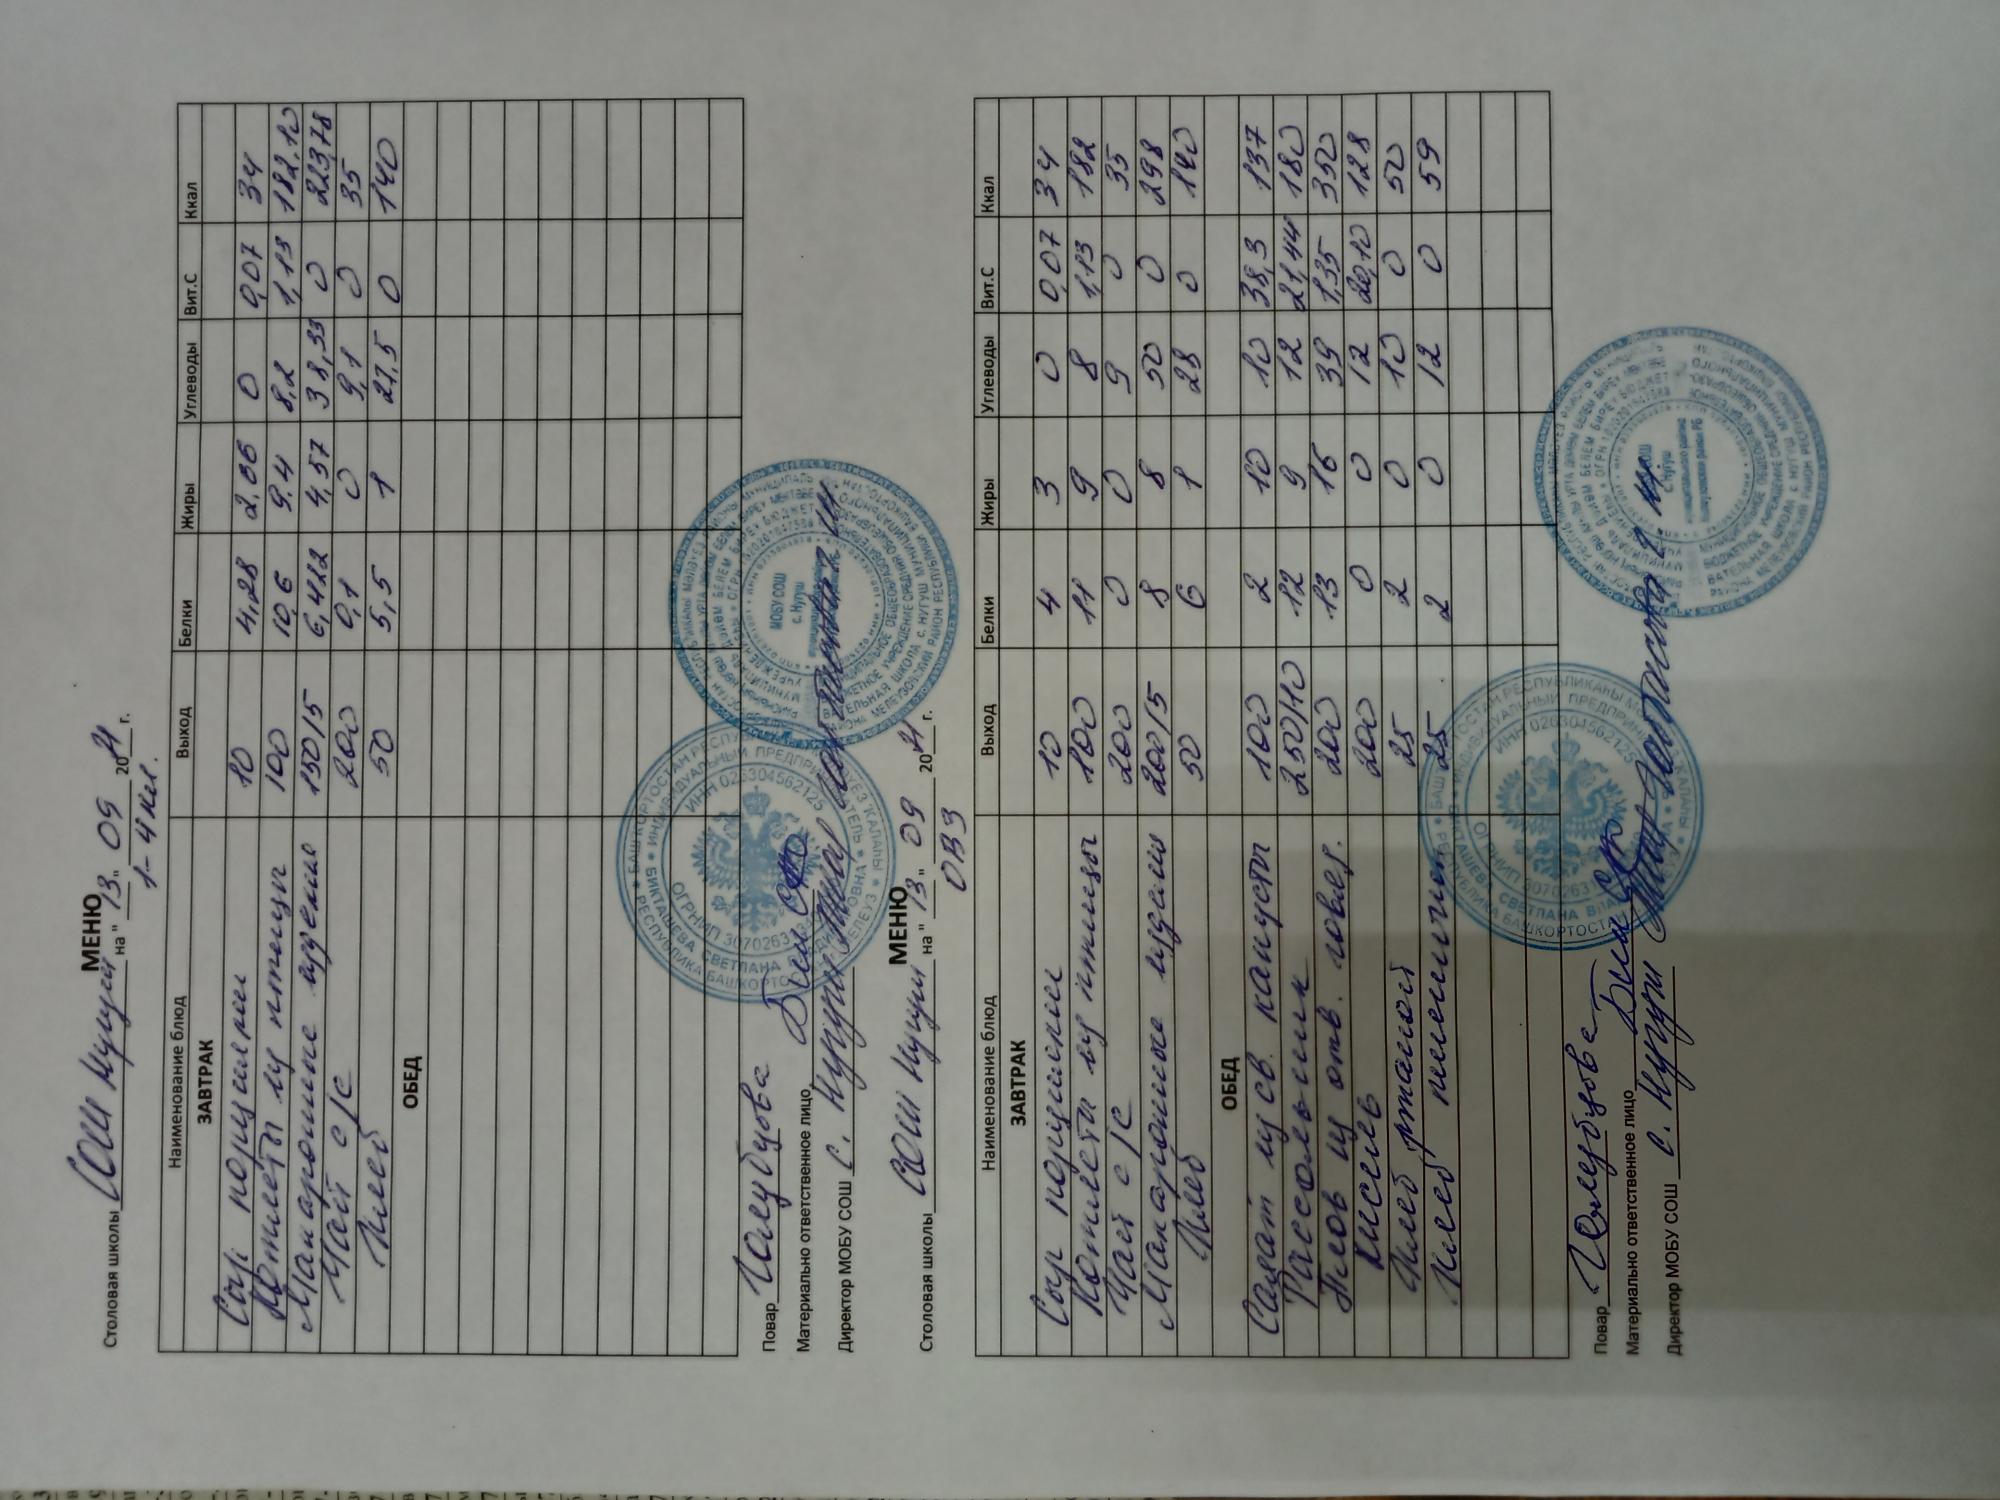 МЕНЮ
Столовая школы СОШ Нугуш на " 13 " 09 20 21 г.
1-4 кл.
Наименование блюд Выход Белки Жиры Углеводы Вит.С Ккал
ЗАВТРАК
Сыр порциями 10 4,28 2,06 0 0,07 34
Котлеты из птицы 100 10,6 9,4 8,2 1,13 182,10
Макаронные изделия 150/5 6,422 4,57 38,33 0 223,78
Чай с/с 200 0,1 0 9,1 0 35
Хлеб 50 5,5 1 27,5 0 140
ОБЕД
Повар Голубцова
Материально ответственное лицо
Директор МОБУ СОШ с. Нугуш
МЕНЮ
Столовая школы СОШ Нугуш на " 13 " 09 20 21 г.
ОВЗ
Наименование блюд Выход Белки Жиры Углеводы Вит.С Ккал
ЗАВТРАК
Сыр порциями 10 4 3 0 0,07 34
Котлета из птицы 100 11 9 8 1,13 182
Чай с/с 200 0 0 9 0 35
Макаронные изделия 200/5 8 8 50 0 298
Хлеб 50 6 1 28 0 140
ОБЕД
Салат из св. капусты 100 2 10 10 38,3 137
Рассольник 250/10 12 9 12 21,44 180
Плов из отв. говяд. 200 13 16 39 1,35 350
Кисель 200 0 0 12 20,10 128
Хлеб ржаной 25 2 0 10 0 50
Хлеб пшеничный 25 2 0 12 0 59
Повар Голубцова
Материально ответственное лицо
Директор МОБУ СОШ с. Нугуш